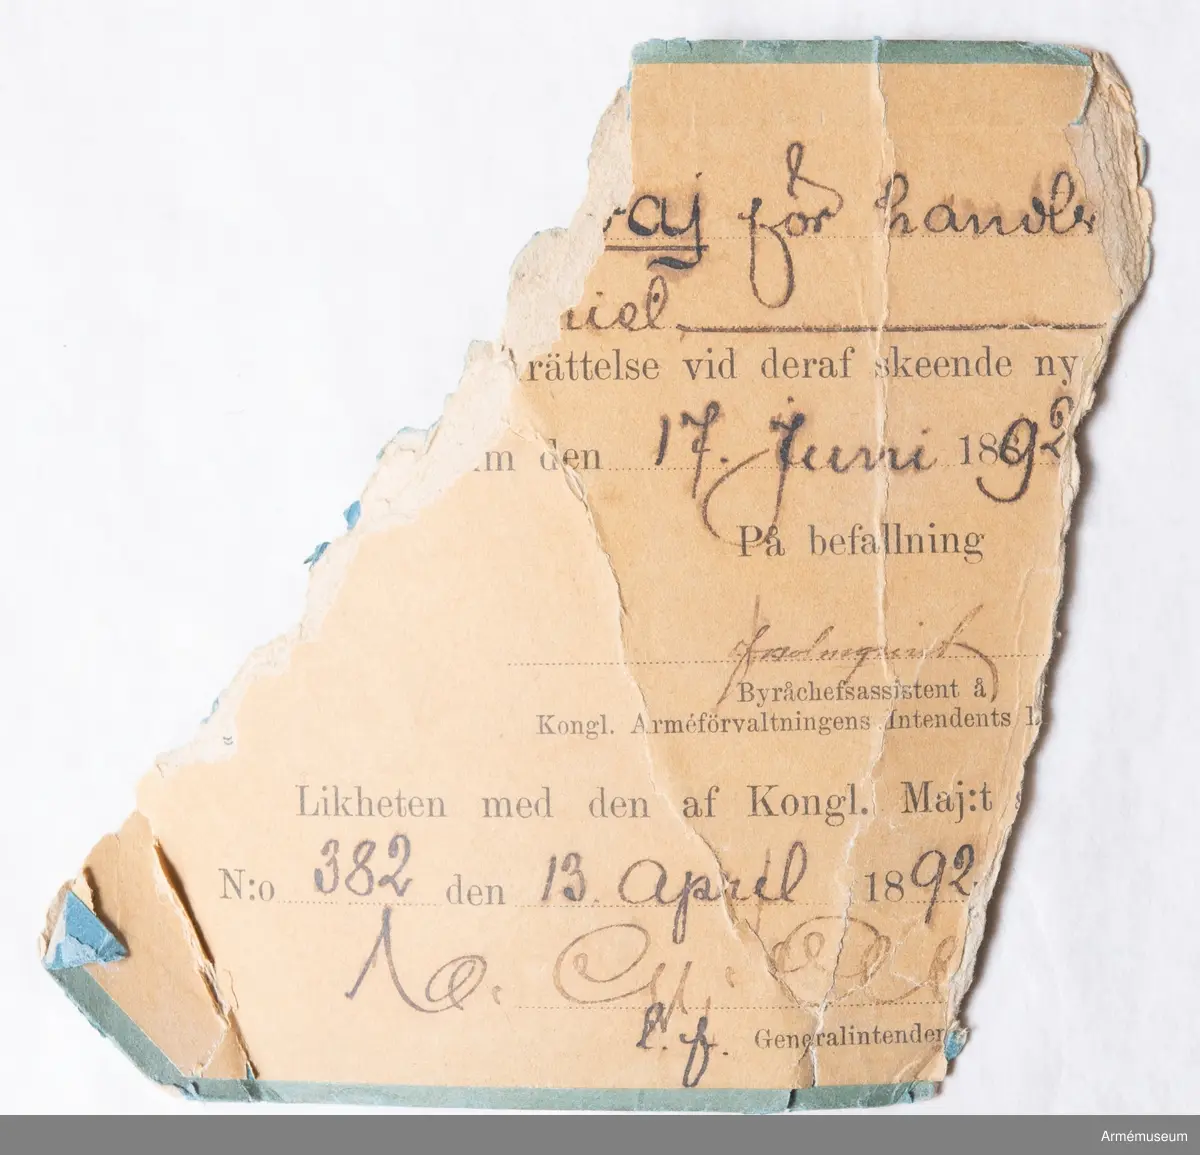 för handl
niel
rättelse vid deraf skeende ny
m den 17. Juni 1892
På befallning
Holmquist
Byråchefsassistent å
Kongl. Arméförvaltningens Intendents
Likheten med den af Kongl. Maj:t
N:o 382 den 13 April 1892
t. f. Generalintenden
Armémuseum